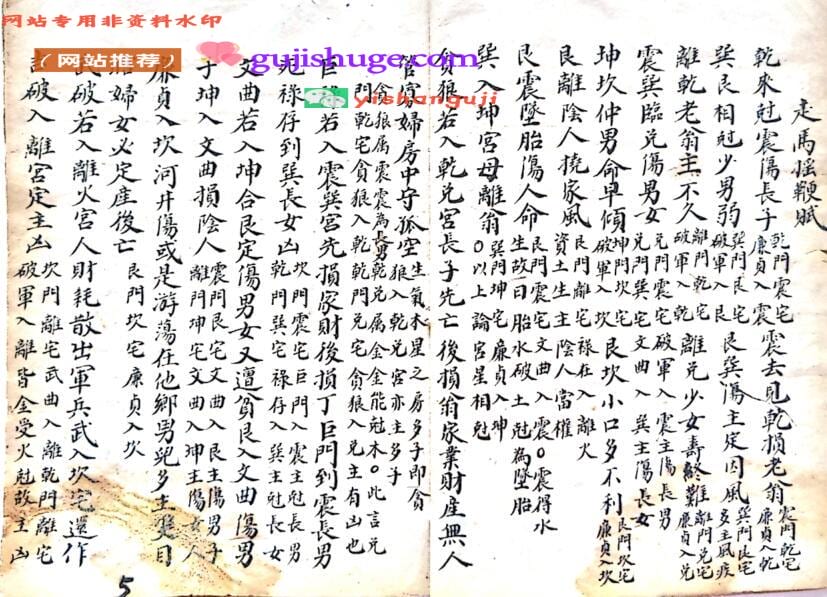 网站专用非资料水印
(网站推荐)
gujishuge.com
yishanguji
走馬摇鞭賦
乾來尅震傷長子 乾門震宅 廉貞入震 震去見乾損老翁 震門乾宅 廉貞入乾
巽艮相尅少男弱 巽門艮宅 破軍入艮 艮巽傷主定因風 巽門艮宅 多主風疾
離乾老翁主不久 離門乾宅 破軍入乾 離兌少女壽齡難 離門兌宅 廉貞入兌
震巽臨兌傷男女 兌門震宅 破軍入震主傷長男 兌門巽宅 文曲入巽主傷長女
坤坎仲男命早傾 坤門坎宅 破軍入坎 艮坎小口多不利 艮門坎宅 廉貞入坎
艮離陰人撓家風 艮門離宅 禄存入離火 資土生主陰人當權
艮震墜胎傷人命 艮門震宅 文曲入震○震得水 生故曰胎水破土尅為墜胎
巽入坤宮母離翁 巽門坤宅 廉貞入坤 ○以上論宮星相尅
貪狼若入乾兌宮長子先亡後損翁家業財産無人
管寡婦房中守孤空 生氣木星之房多子即貪狼入乾兌宮亦主多子
貪狼属震震為長男乾兌属金金能尅木○此言兌
門乾宅貪狼入乾乾門兌宅貪狼入兌主有凶也
巨門若入震巽宮先損家財後損丁巨門到震長男
死禄存到巽長女凶 坎門震宅巨門入震主尅長男 乾門巽宅禄存入巽主尅長女
文曲若入坤合艮定傷男女又遭貧艮入文曲傷男
子坤入文曲損陰人 震門艮宅文曲入艮主傷男子 離門坤宅文曲入坤主傷女人
廉貞入坎河井傷或是游蕩在他鄉男兒多主雙目
婦女必定産後亡 艮門坎宅廉貞入坎
武破若入離火宮人財耗散出軍兵武入坎宅還作
破入離宮定主凶 坎門離宅武曲入離乾門離宅 破軍入離皆金受火尅故主凶
5